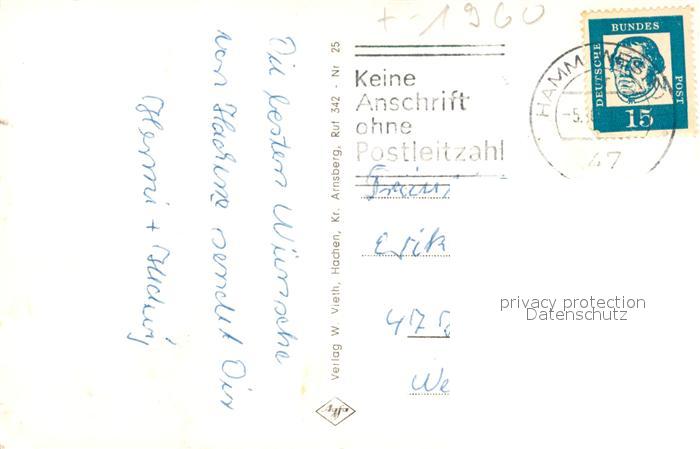 + - 1960
Die besten Wünsche
von Hachen sendet Dir
Henni + Hedwig
Verlag W. Vieth, Hachen, Kr. Arnsberg, Ruf 342 - Nr 25
agfa
Keine
Anschrift
ohne
Postleitzahl
HAMM (WESTF)
-5.
47
DEUTSCHE
BUNDES
POST
15
privacy protection
Datenschutz